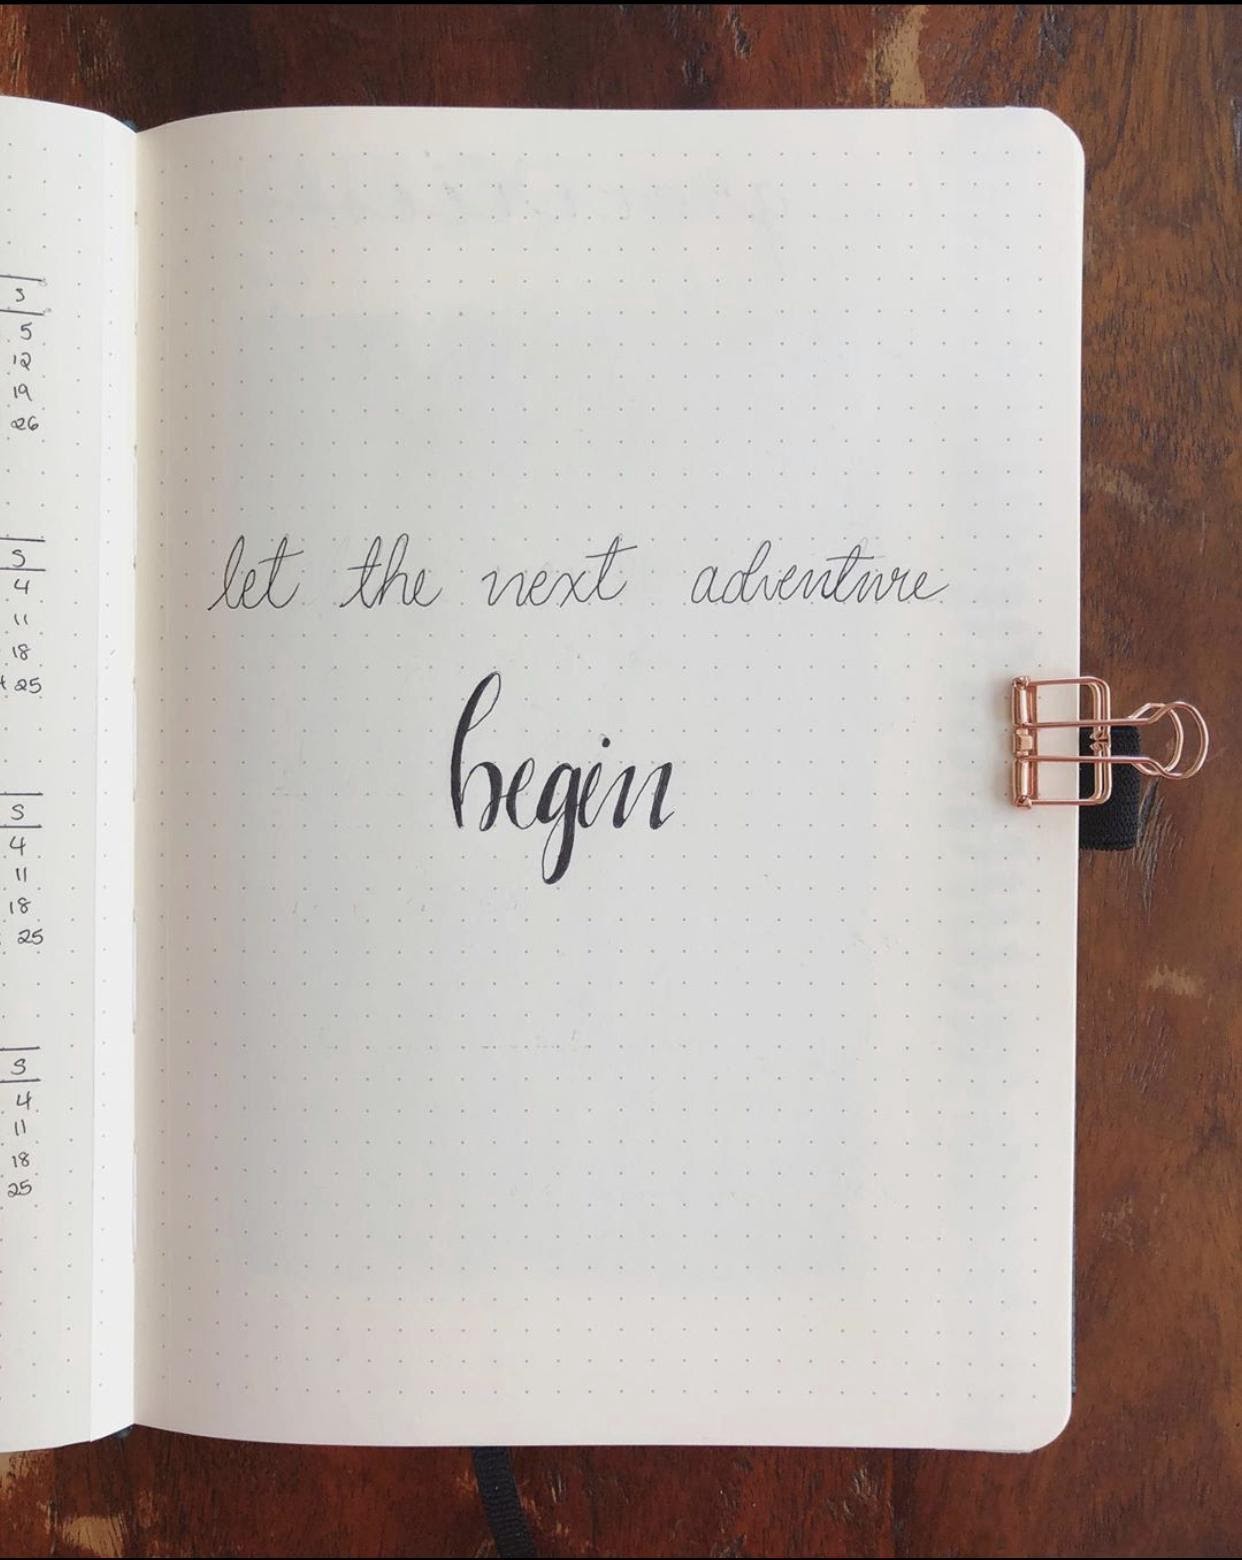 S
5
12
19
26
S
4
11
18
25
S
4
11
18
25
S
4
11
18
25
let the next adventure
begin